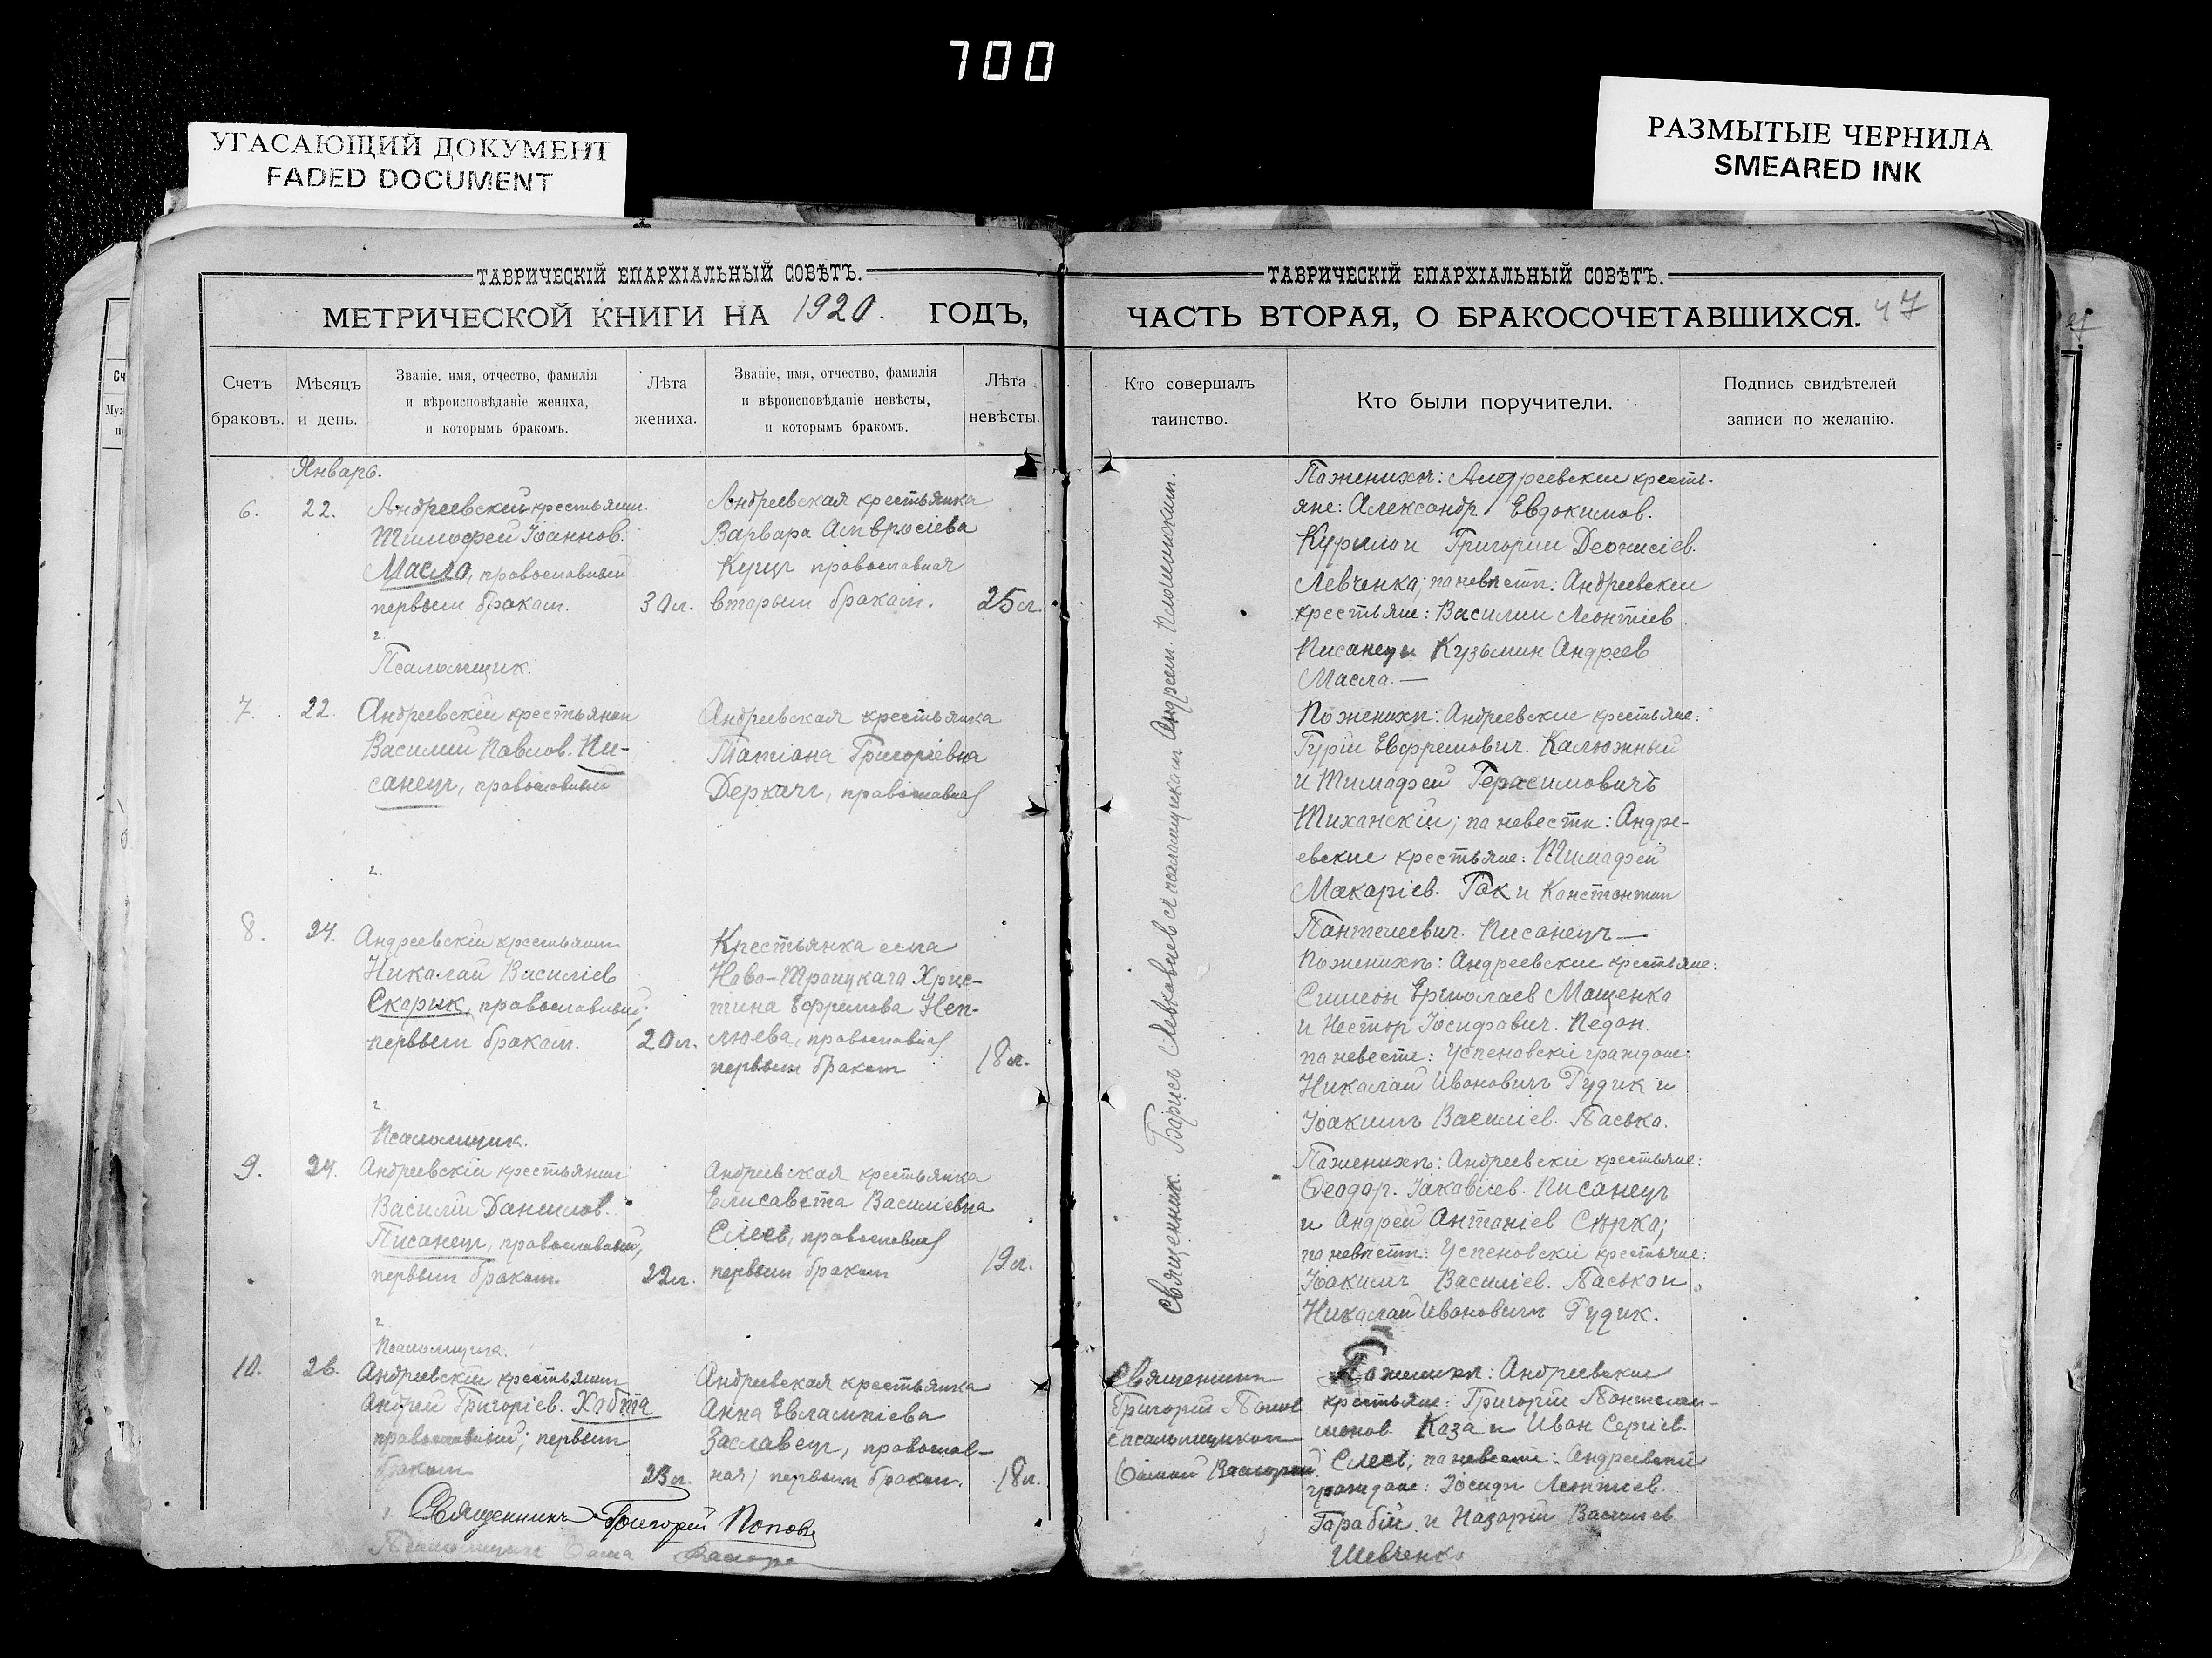 700
УГАСАЮЩИЙ ДОКУМЕНТ
FADED DOCUMENT
РАЗМЫТЫЕ ЧЕРНИЛА
SMEARED INK
ТАВРИЧЕСКІЙ ЕПАРХІАЛЬНЫЙ СОВѢТЪ.
МЕТРИЧЕСКОЙ КНИГИ НА 1920. ГОДЪ,
Счетъ браковъ.
Мѣсяцъ и день.
Званіе, имя, отчество, фамилія
и вѣроисповѣданіе жениха,
и которымъ бракомъ.
Лѣта жениха.
Званіе, имя, отчество, фамилія
и вѣроисповѣданіе невѣсты,
и которымъ бракомъ.
Лѣта невѣсты.
Январь.
6. 22.
Андреевский крестьянин.
Тимофей Іоаннов.
Масло, православный
первым браком.
30 л.
Андреевская крестьянка
Варвара Амвросіева
Куцъ православная
вторым браком.
25 л.
2.
Псаломщик.
7. 22.
Андреевскій крестьянин
Василий Павлов. Пи-
санецъ, православный
Андреевская крестьянка
Татіана Григоріевна
Деркачъ, православная
2.
8. 24.
Андреевскій крестьянин
Николай Василіев
Скарык, православный,
первым браком.
20 л.
Крестьянка села
Ново-Троицкаго Хрис-
тина Ефремова Неп-
люева, православная
первым браком
18 л.
2.
Псаломщик.
9. 24.
Андреевскій крестьянин
Василій Данилов.
Писанецъ, православный,
первым браком.
22 л.
Андреевская крестьянка
Елисавета Василіевна
Слесь, православная
первым браком
19 л.
2.
Псаломщик.
10. 26.
Андреевскій крестьянин
Андрей Григоріев. Хобта
православный; первым
браком
23 л.
Андреевская крестьянка
Анна Евлампіева
Заславецъ, православ-
ная, первым браком.
18 л.
Священникъ Григорій Попов
ТАВРИЧЕСКІЙ ЕПАРХІАЛЬНЫЙ СОВѢТЪ.
ЧАСТЬ ВТОРАЯ, О БРАКОСОЧЕТАВШИХСЯ. 47
Кто совершалъ таинство.
Кто были поручители.
Подпись свидѣтелей
записи по желанію.
Священник Борис Левковцев с псаломщиком Андреем
По женихѣ: Андреевскіе кресть-
яне: Александр Евдокимов.
Курило и Григорий Деонисіев.
Левченко; по невѣстѣ: Андреевскіе
крестьяне: Василий Леонтіев
Писанец и Кузьмин Андреев
Масла. —
По женихѣ: Андреевские крестьяне:
Гурій Евфремович. Калюжный
и Тимофей Герасимовичъ
Тиханскій; по невести: Андре-
евские крестьяне: Тимофей
Макаріев. Гок и Константин
Пантелеевич. Писанецъ —
По женихѣ: Андреевские крестьяне:
Симеон Ермолаев Мащенко
и Нестор Іосифович. Педан.
по невесте: Успеновскіе граждане:
Николай Ивановичъ Гудик и
Іоакимъ Василіев. Пасько.
По женихѣ: Андреевскіе крестьяне:
Ѳеодор. Іаковлев. Писанецъ
и Андрей Антоніев Сѣрка;
по невѣстѣ: Успеновскіе крестьяне:
Іоакимъ Василіев. Пасько и
Николай Ивановичъ Гудик.
Священник
Григорій Попов
с псаломщиком
По женихѣ: Андреевские
крестьяне: Григорій Пантелей-
монов. Каза и Иван Сергіев.
Слесь; по невесте: Андреевскіе
граждане: Іосиф Леонтіев.
Гарабій и Назарій Василіев
Шевченко